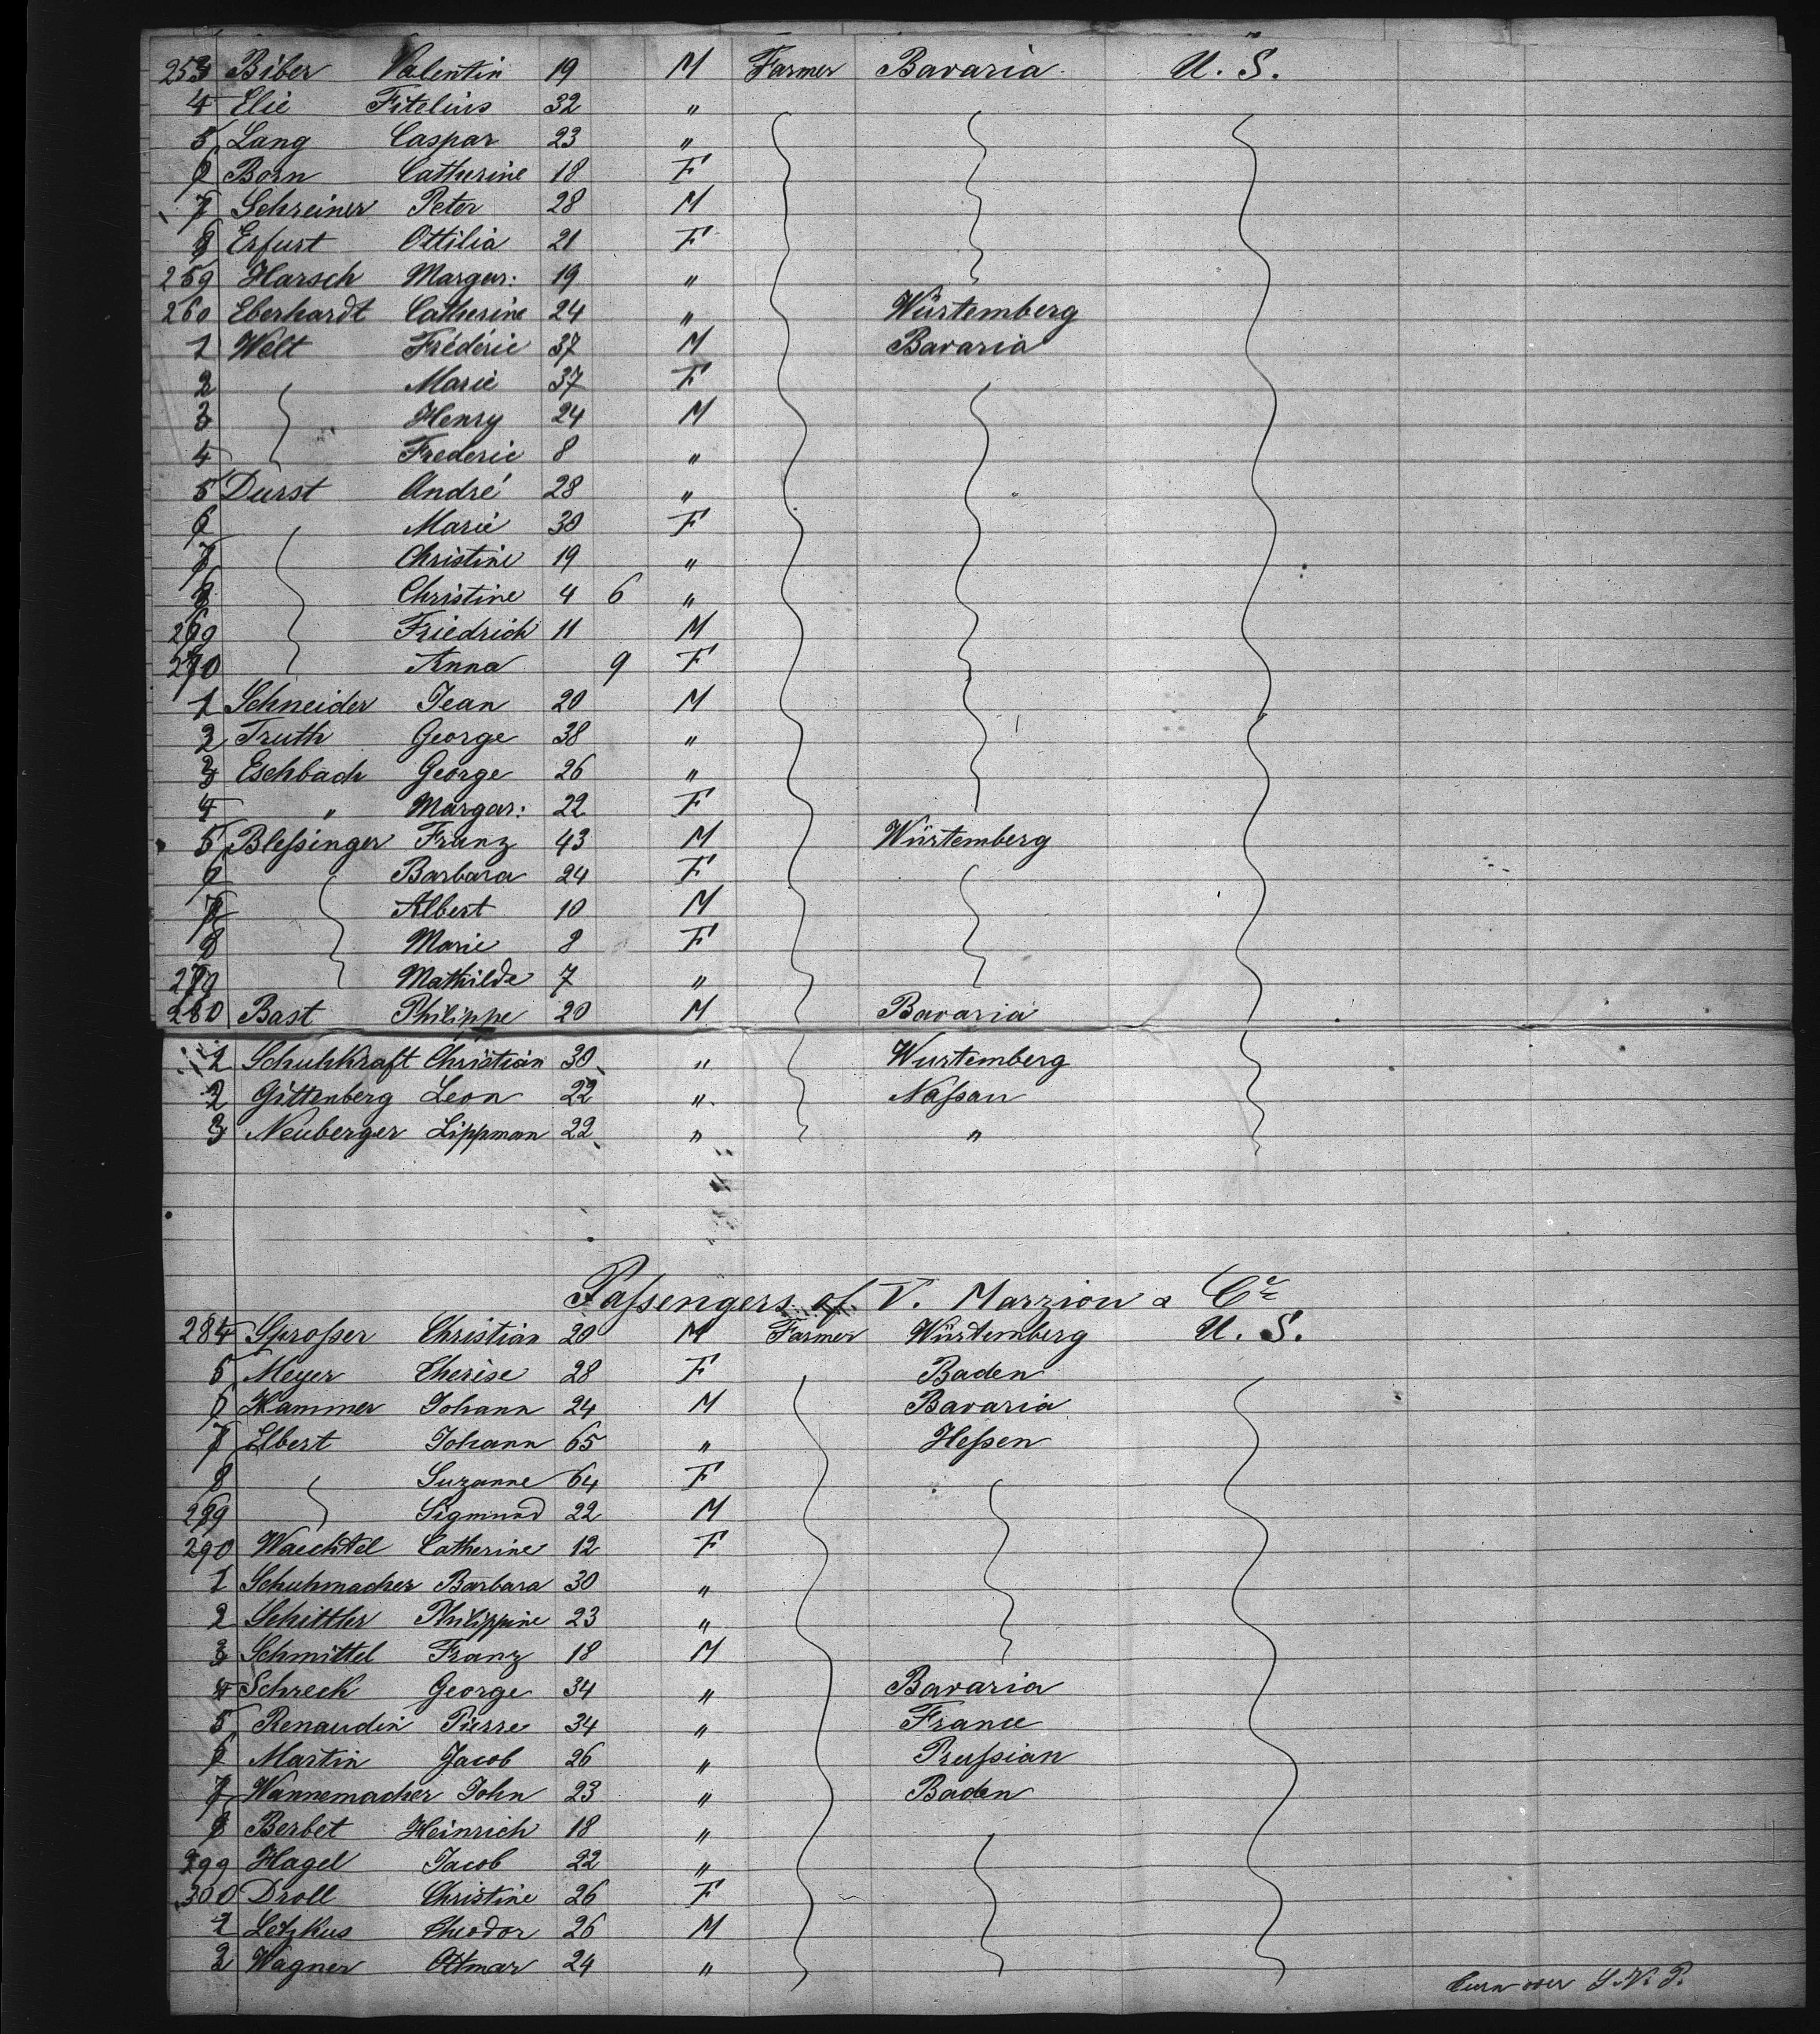 253 Biber Valentin 19 M Farmer Bavaria U. S.
4 Elie Fitelius 32 "
5 Lang Caspar 23 "
6 Born Catherine 18 F
7 Schreiner Peter 28 M
8 Erfurt Ottilia 21 F
259 Harsch Margar: 19 "
260 Eberhardt Catherine 24 " Würtemberg
1 Welt Fréderic 37 M Bavaria
2 Marie 37 F
3 Henry 24 M
4 Frederic 8 "
5 Durst André 28 "
6 Marie 30 F
7 Christine 19 "
8 Christine 4 6 "
269 Friedrich 11 M
270 Anna 9 F
1 Schneider Jean 20 M
2 Truth George 38 "
3 Eschbach George 26 "
4 " Margar: 22 F
5 Bleſsinger Franz 43 M Würtemberg
6 Barbara 24 F
7 Albert 10 M
8 Marie 8 F
279 Mathilde 7 "
280 Bast Philippe 20 M Bavaria
1 Schuhkraft Christian 30 " Wurtemberg
2 Gittenberg Leon 22 " Naſsau
3 Neuberger Lippman 22 " "
Paſsengers of V. Marzion & Ce
284 Sproſser Christian 20 M Farmer Würtemberg U. S.
5 Meyer Therise 28 F Baden
6 Kammer Johann 24 M Bavaria
7 Elbert Johann 65 " Heſsen
8 Suzanne 64 F
289 Sigmund 22 M
290 Waechtel Catherine 12 F
1 Schuhmacher Barbara 30 "
2 Schittler Philippine 23 "
3 Schmittel Franz 18 M
4 Schreck George 34 " Bavaria
5 Renaudin Pierre 34 " France
6 Martin Jacob 26 " Pruſsian
7 Wannemacher John 23 " Baden
8 Berbet Heinrich 18 "
299 Hagel Jacob 22 "
300 Droll Christine 26 F
1 Letzkus Theodor 26 M
2 Wagner Ottmar 24 "
turn over S.V.P.